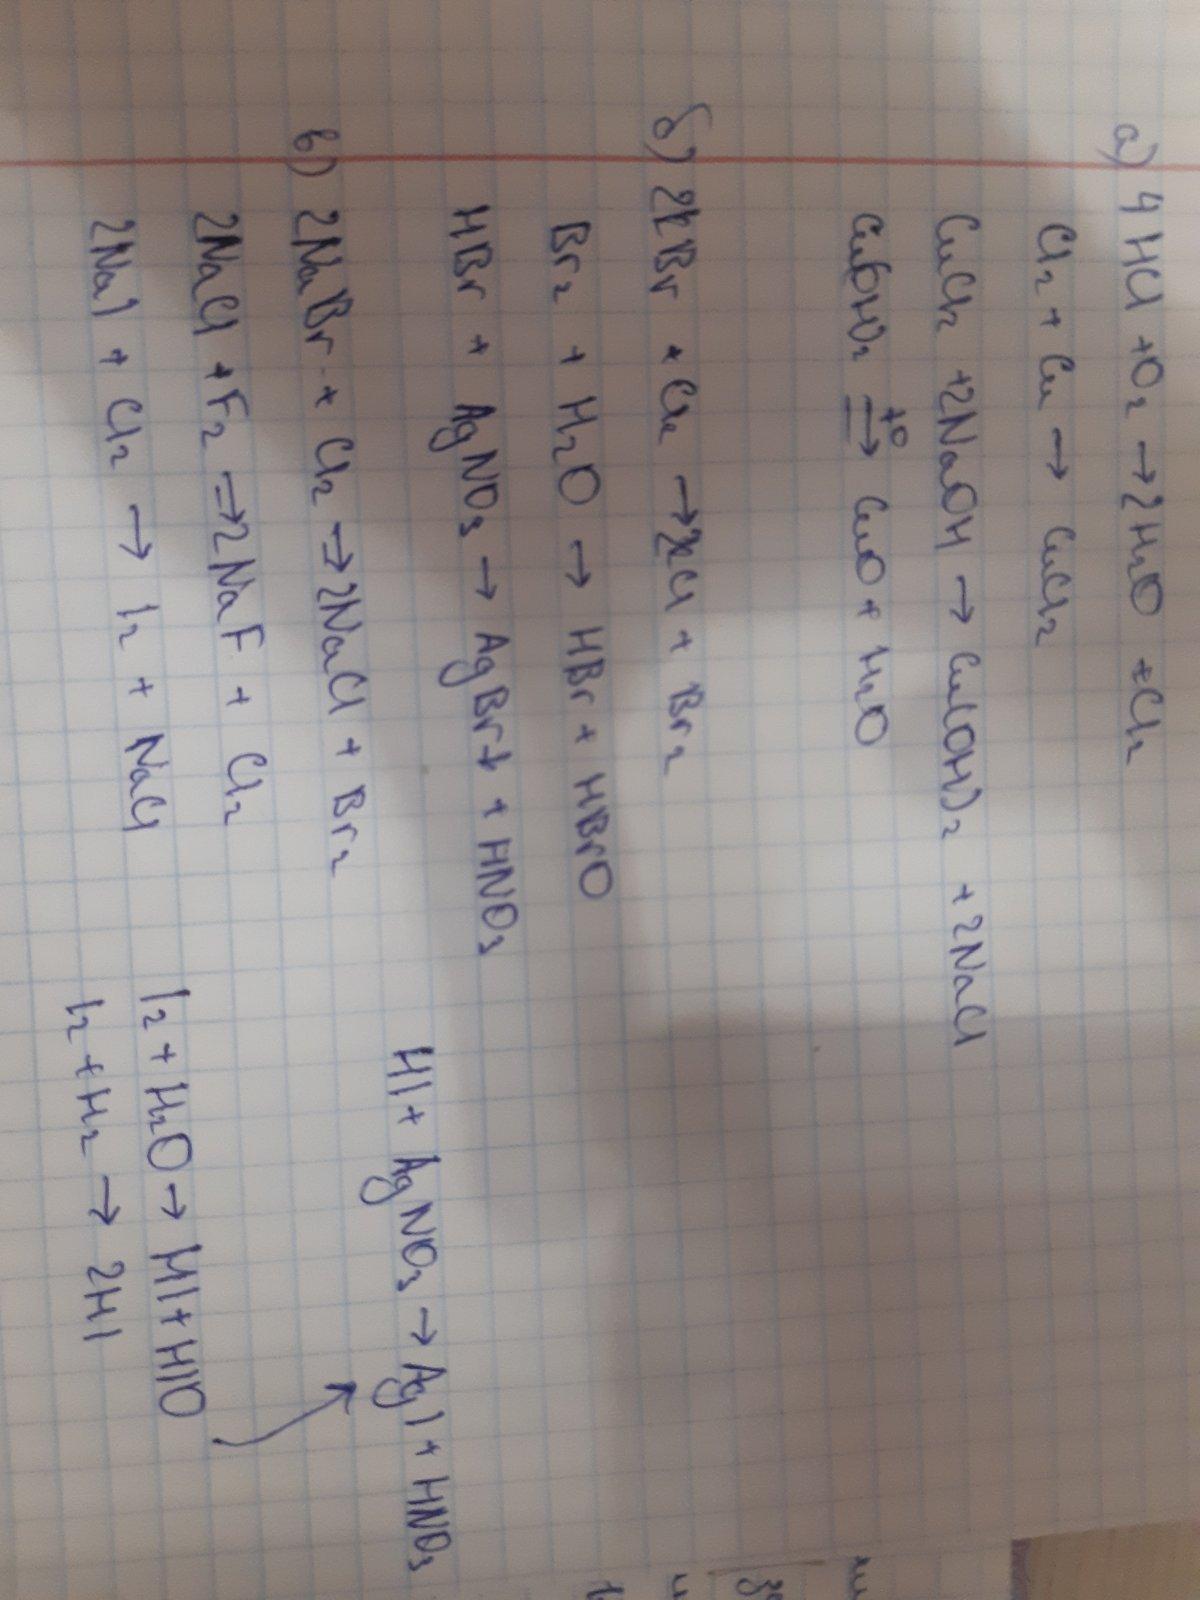 а) 4HCl + O₂ → 2H₂O + Cl₂
Cl₂ + Cu → CuCl₂
CuCl₂ + 2NaOH → Cu(OH)₂ + 2NaCl
Cu(OH)₂ ⇒ CuO + H₂O
t°
б) 2KBr + Cl₂ → 2KCl + Br₂
Br₂ + H₂O → HBr + HBrO
HBr + AgNO₃ → AgBr↓ + HNO₃
HI + AgNO₃ → AgI + HNO₃
в) 2NaBr + Cl₂ → 2NaCl + Br₂
2NaCl + F₂ → 2NaF + Cl₂
2NaI + Cl₂ → I₂ + NaCl
I₂ + H₂O → HI + HIO
I₂ + H₂ → 2HI